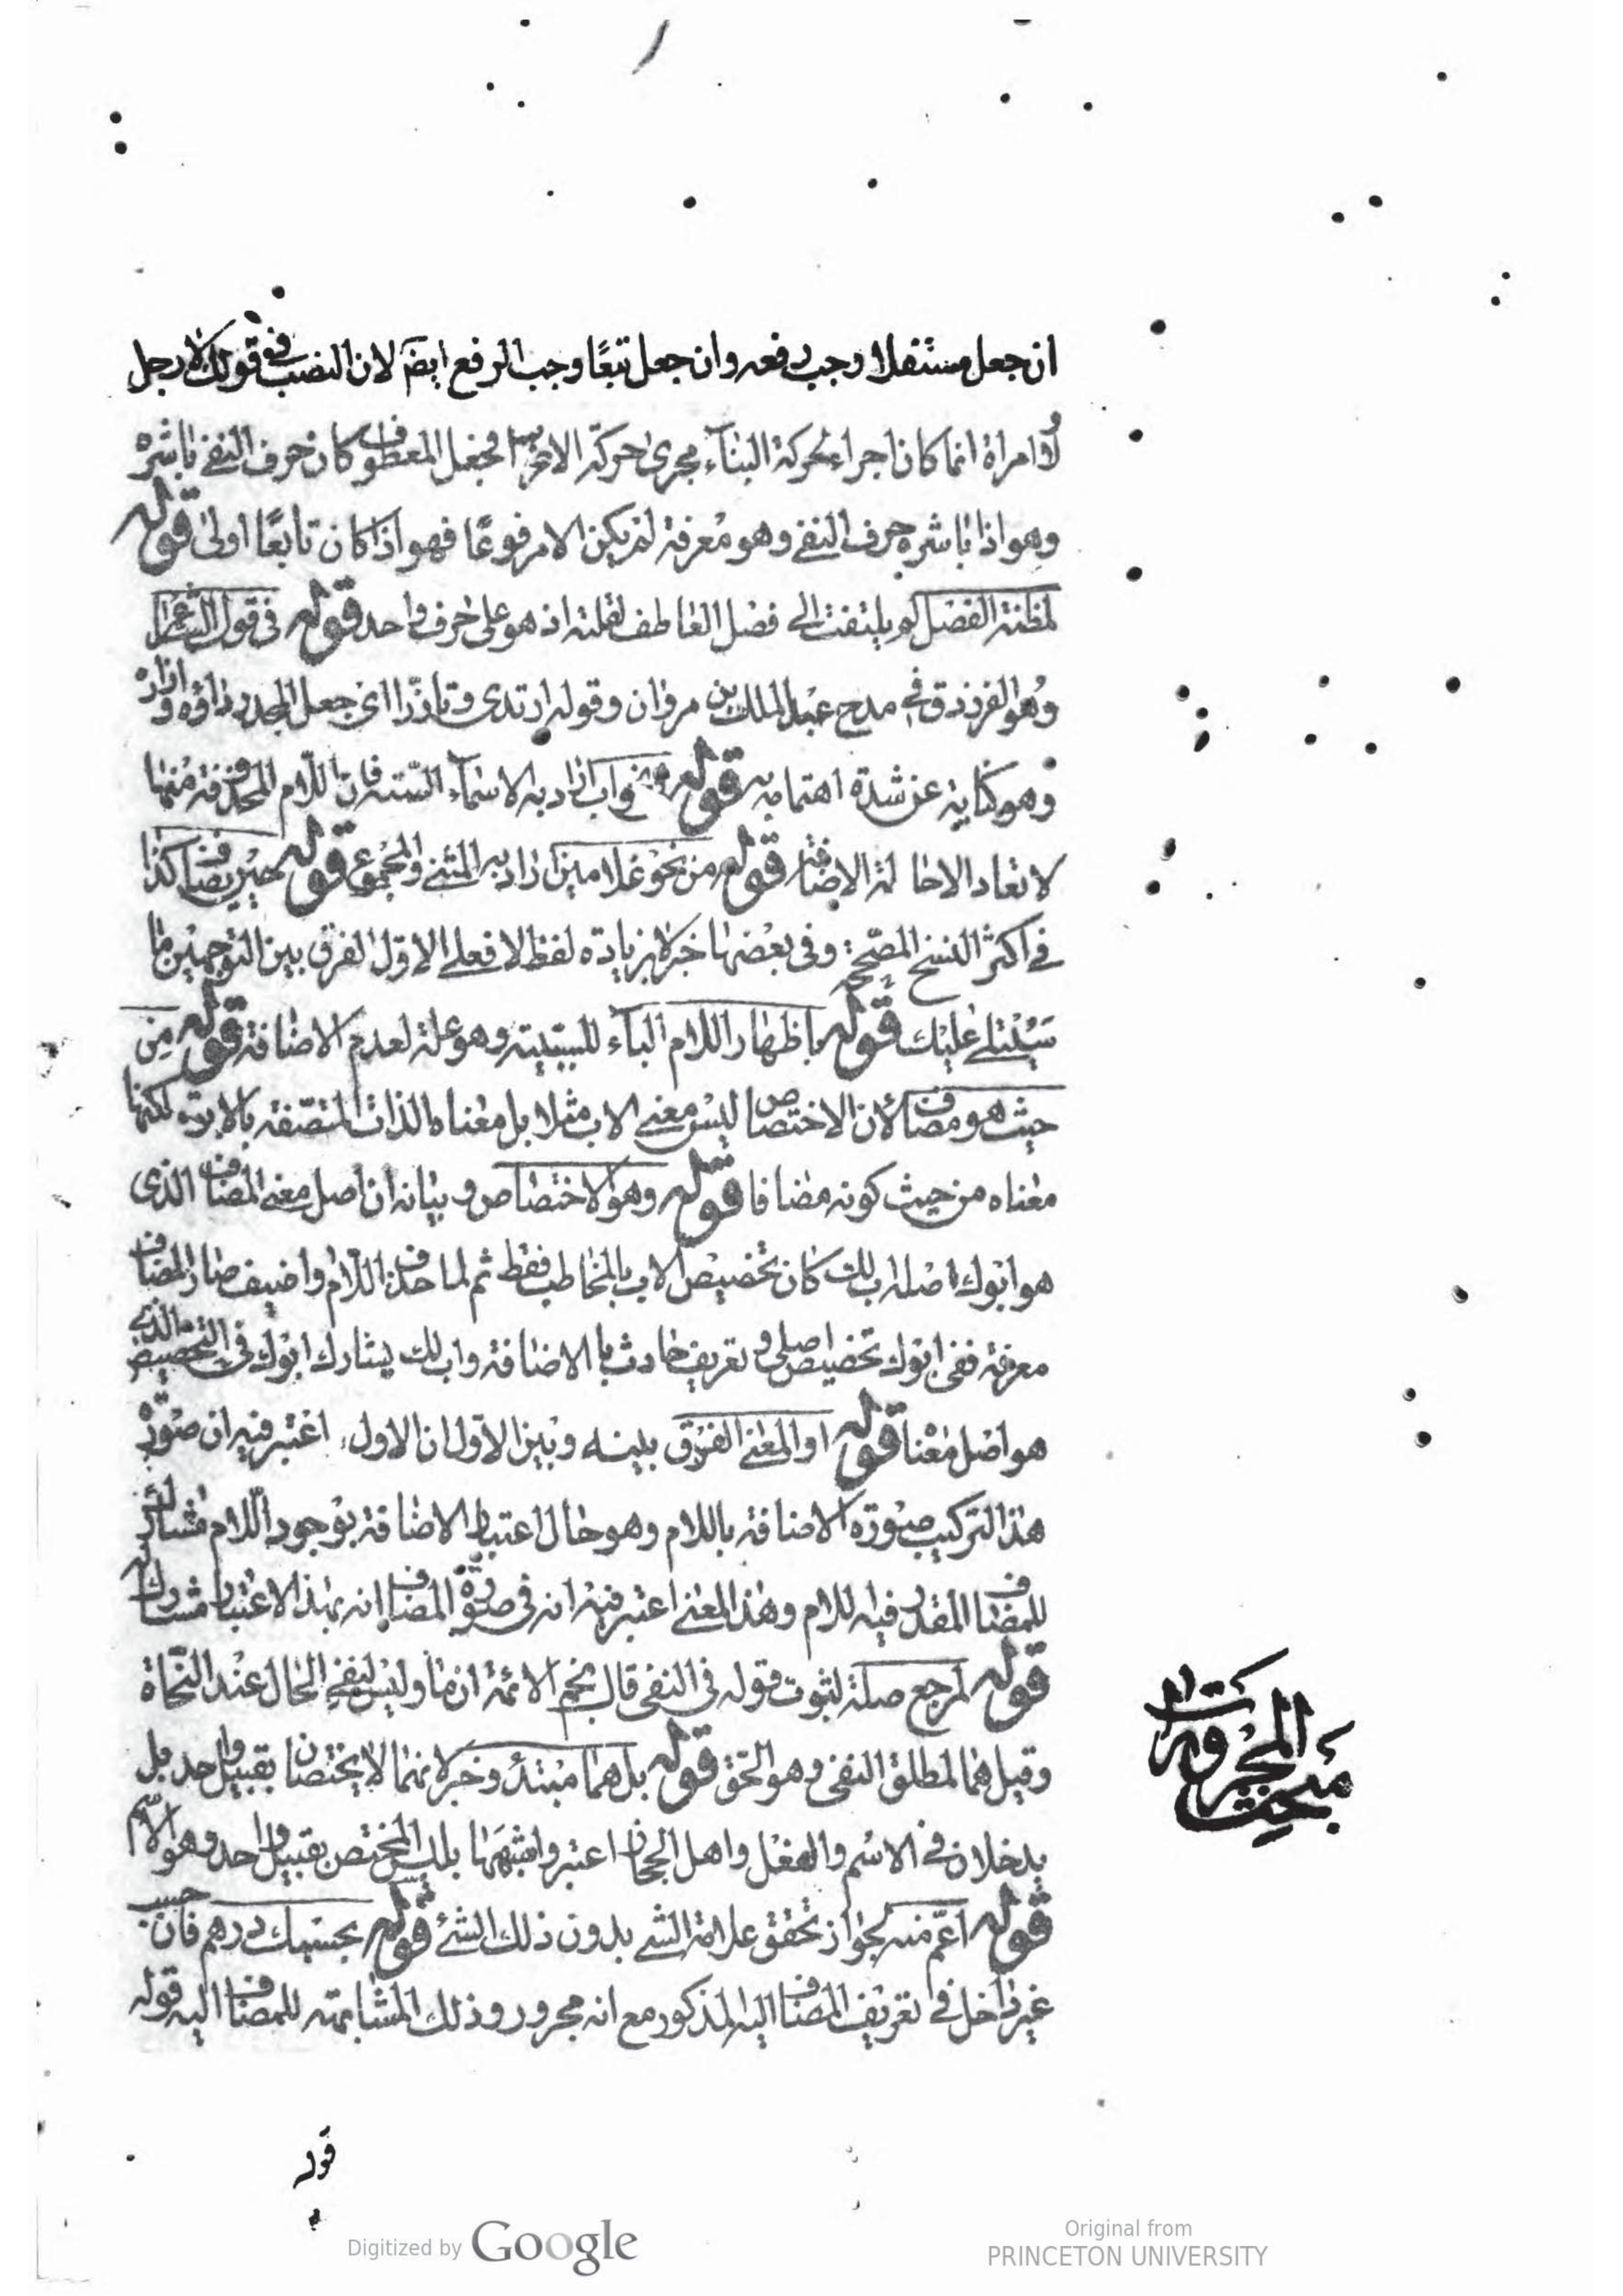 ان جعل مستقلا وجب رفعه وان جعل تبعًا وجب الرفع ايضا لان النصب فى قولك لا رجل
ولا امراة انما كان اجراء لحركة البناء مجرى حركة الاعراب فجعل المعطوف كان حرف النفى باشره
وهو اذا باشره حرف النفى وهو معرفة لم يكن الا مرفوعًا فهو اذا كان تابعًا اولى قوله
لمظنة الفصل لم يلتفت الى فصل العاطف لقلته اذ هو على حرف واحد قوله فى قول الشاعر
وهو الفرزدق فى مدح عبد الملك بن مروان وقوله ارتدى وتازرا اى جعل المجد رداؤه وازاره
وهو كناية عن شدة اهتمامه به قوله نحو اب اراد به الاسماء الستة فان اللام المحذوفة منها
لا تعاد الا حالة الاضافة قوله من نحو غلامين اراد به المثنى والمجموع قوله حين يضاف كذا
فى اكثر النسخ المصححة وفى بعضها خبر لا بزيادة لفظ لا فعلى الاول الفرق بين التوجهين ما
سيتلى عليك قوله باظهار اللام الباء للسببية وهو علة لعدم الاضافة قوله من
حيث هو مضاف لان الاختصاص ليس معنى الاب مثلا بل معناه الذات المتصفة بالابوة لكنها
معناه من حيث كونه مضافا قوله وهو الاختصاص وبيانه ان اصل معنى المضاف الذى
هو ابوك اصله اب لك كان تخصيص الاب بالمخاطب فقط ثم لما حذف اللام واضيف صار المضاف
معرفة ففى ابوك تخصيص اصلى وتعريف حادث بالاضافة واب لك يشارك ابوك فى التخصيص الذى
هو اصل معناه قوله او المعنى الفرق بينه وبين الاول ان الاول اعتبر فيه ان صورة
هذا التركيب صورة الاضافة باللام وهو حال اعتبار الاضافة بوجود اللام مشارك
للمضاف المقدر فيه اللام وهذا المعنى اعتبر فيه انه فى صورة المضاف انه بهذا الاعتبار مشارك له
قوله لمرجع صلة لثبوت قوله فى النفى قال نجم الائمة ان ما وليس لنفى الحال عند النحاة
وقيل هما لمطلق النفى وهو الحق قوله بل هما مبتدئ وخبر لانهما لا يختصان بقبيل واحد بل
يدخلان فى الاسم والفعل واهل الحجاز اعتبروا شبههما بليس المختص بقبيل واحد وهو الاسم
قوله اعم منه لجواز تحقق علامة الشى بدون ذلك الشئ قوله بحسبك درهم فان حسب
غير داخل فى تعريف المضاف اليه المذكور مع انه مجرور وذلك المشابهته للمضاف اليه قوله
مبحث المجرورات
قوله
Digitized by Google
Original from
PRINCETON UNIVERSITY